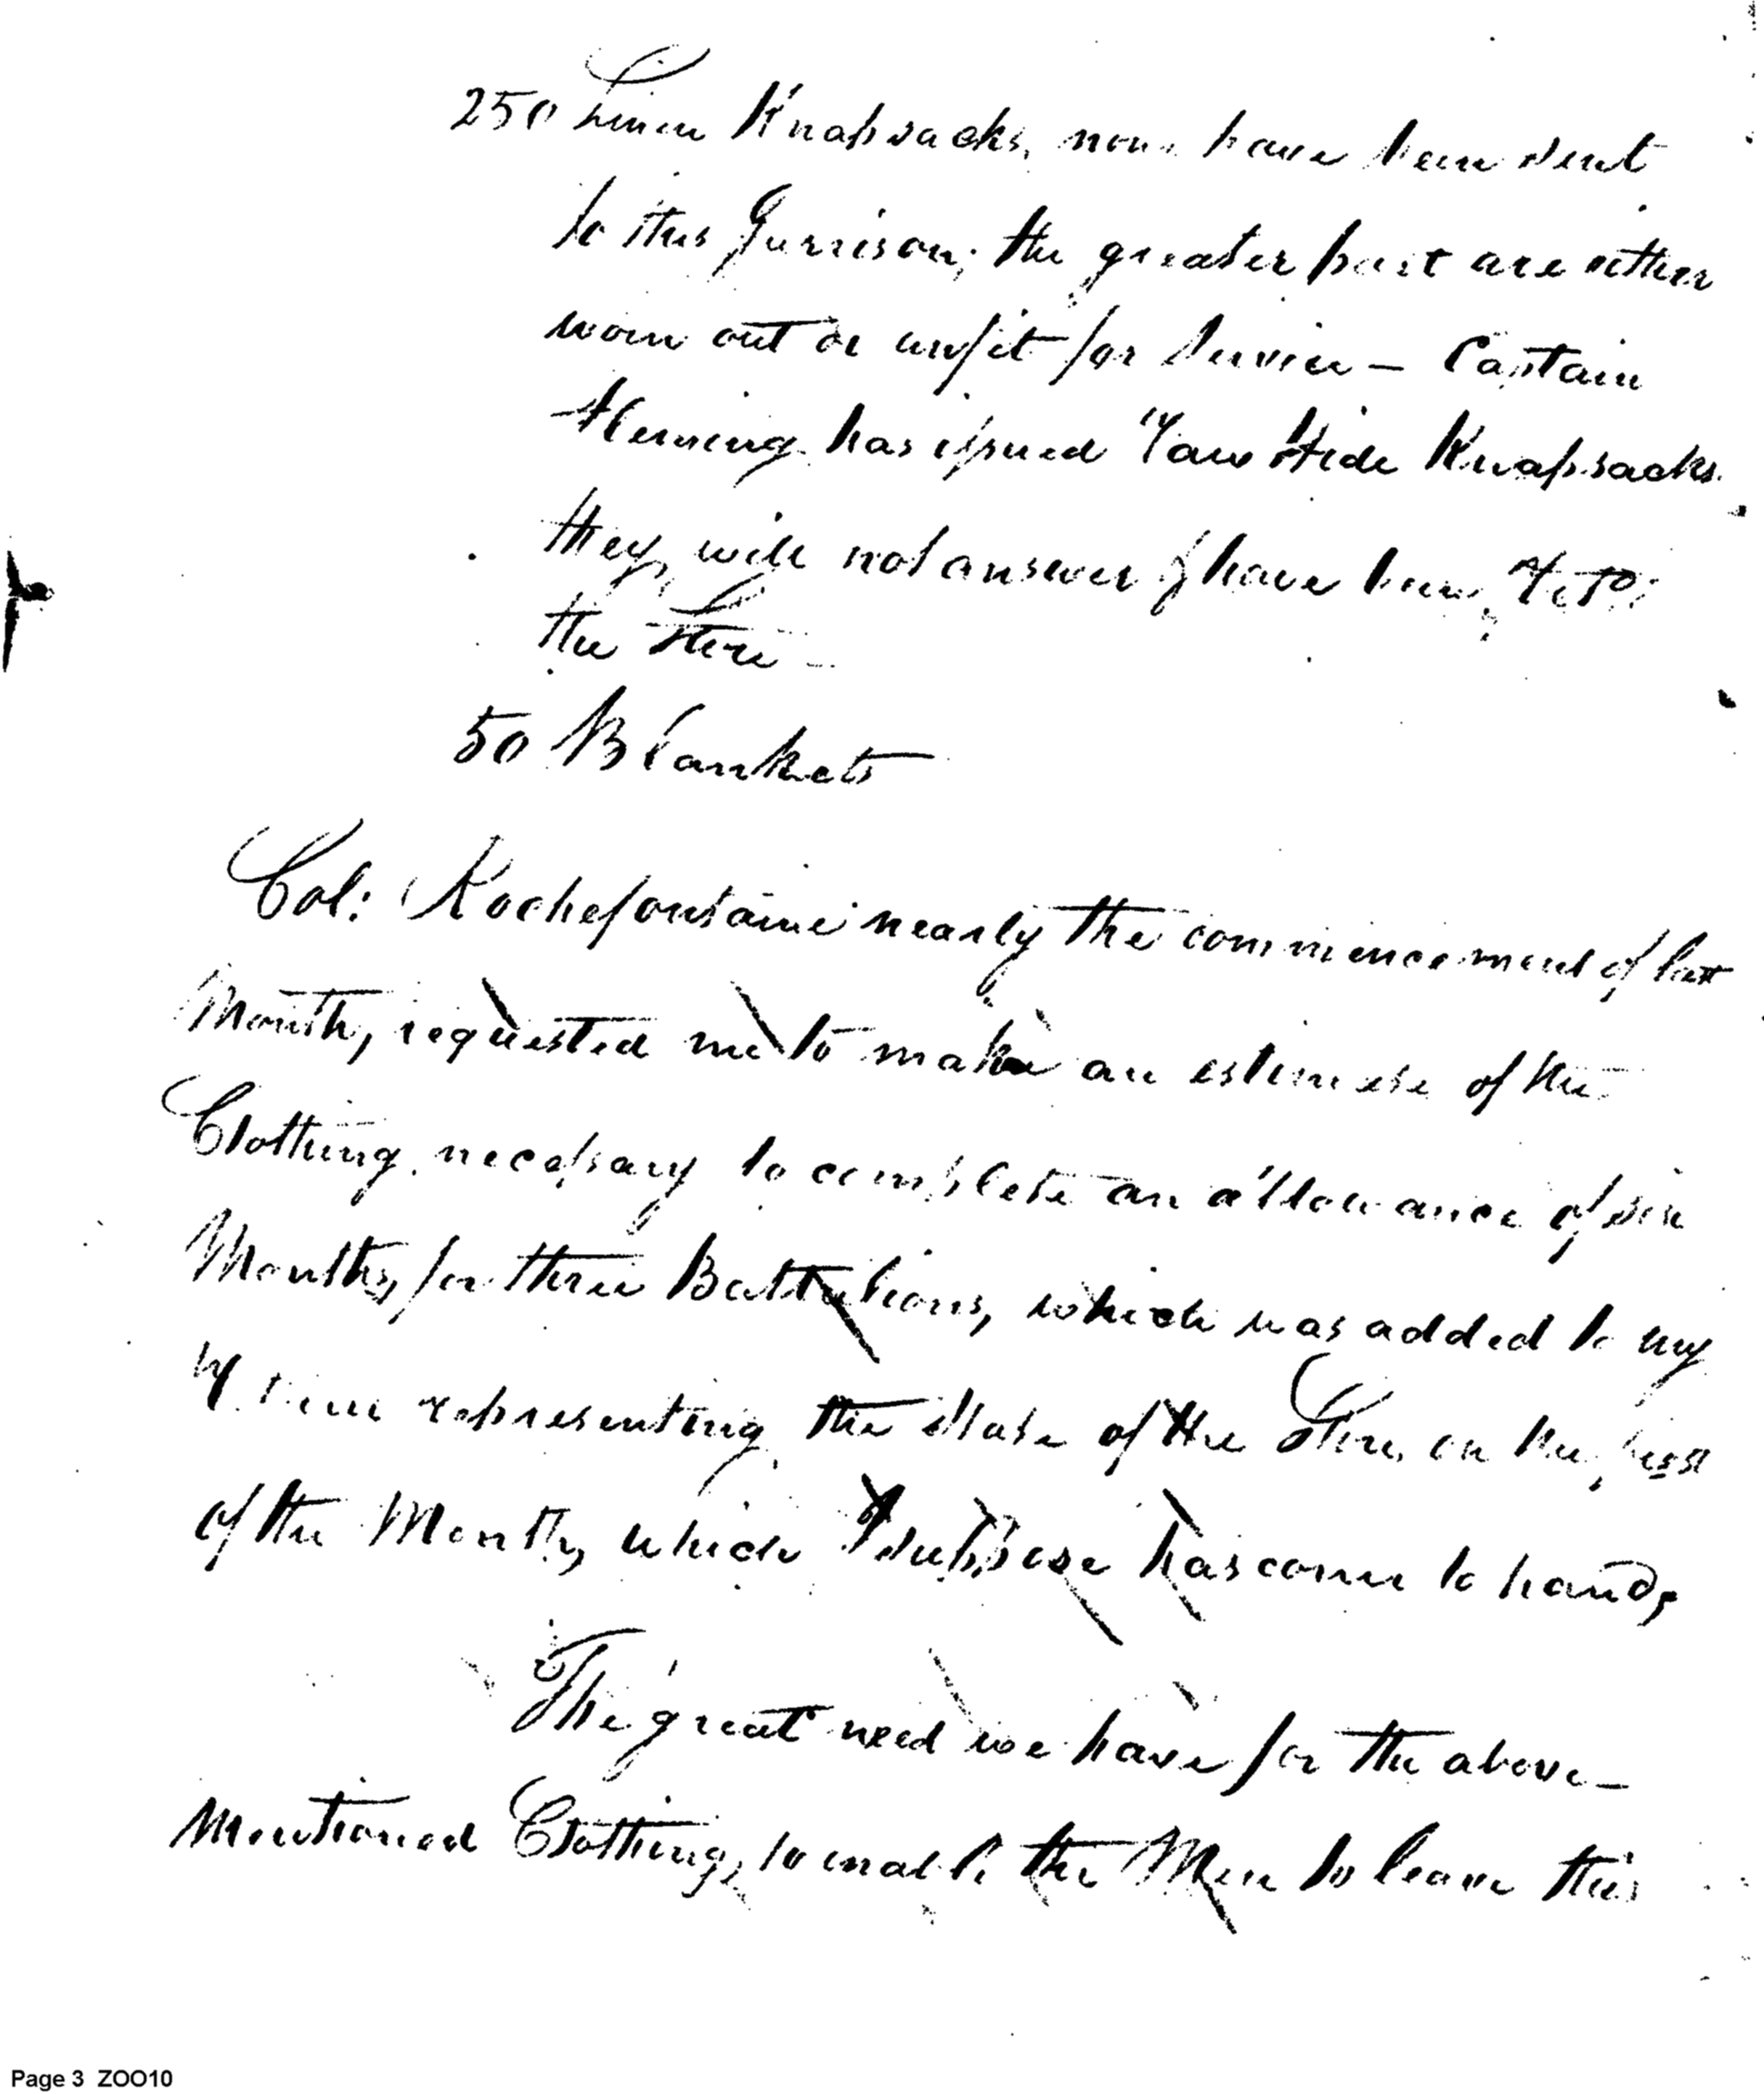 250 Linen Knapsacks, none have been sent
to this Garrison; the greater part are either
worn out or unfit for Service — Captain
has issued Raw Hide Knapsacks
they will not answer & have been
the Store —
50 Blankets
Col: Rochefontaine nearly the commencement of last
Month, requested me to make an estimate of the
Clothing necessary to complete an allowance of six
Months, for three Battalions, which was added to my
representing the State of the Store, on the first
of the Month, which I suppose has come to hand,
The great need we have for the above—
Mentioned Clothing, to enable the Men to leave this
Page 3 ZOO10